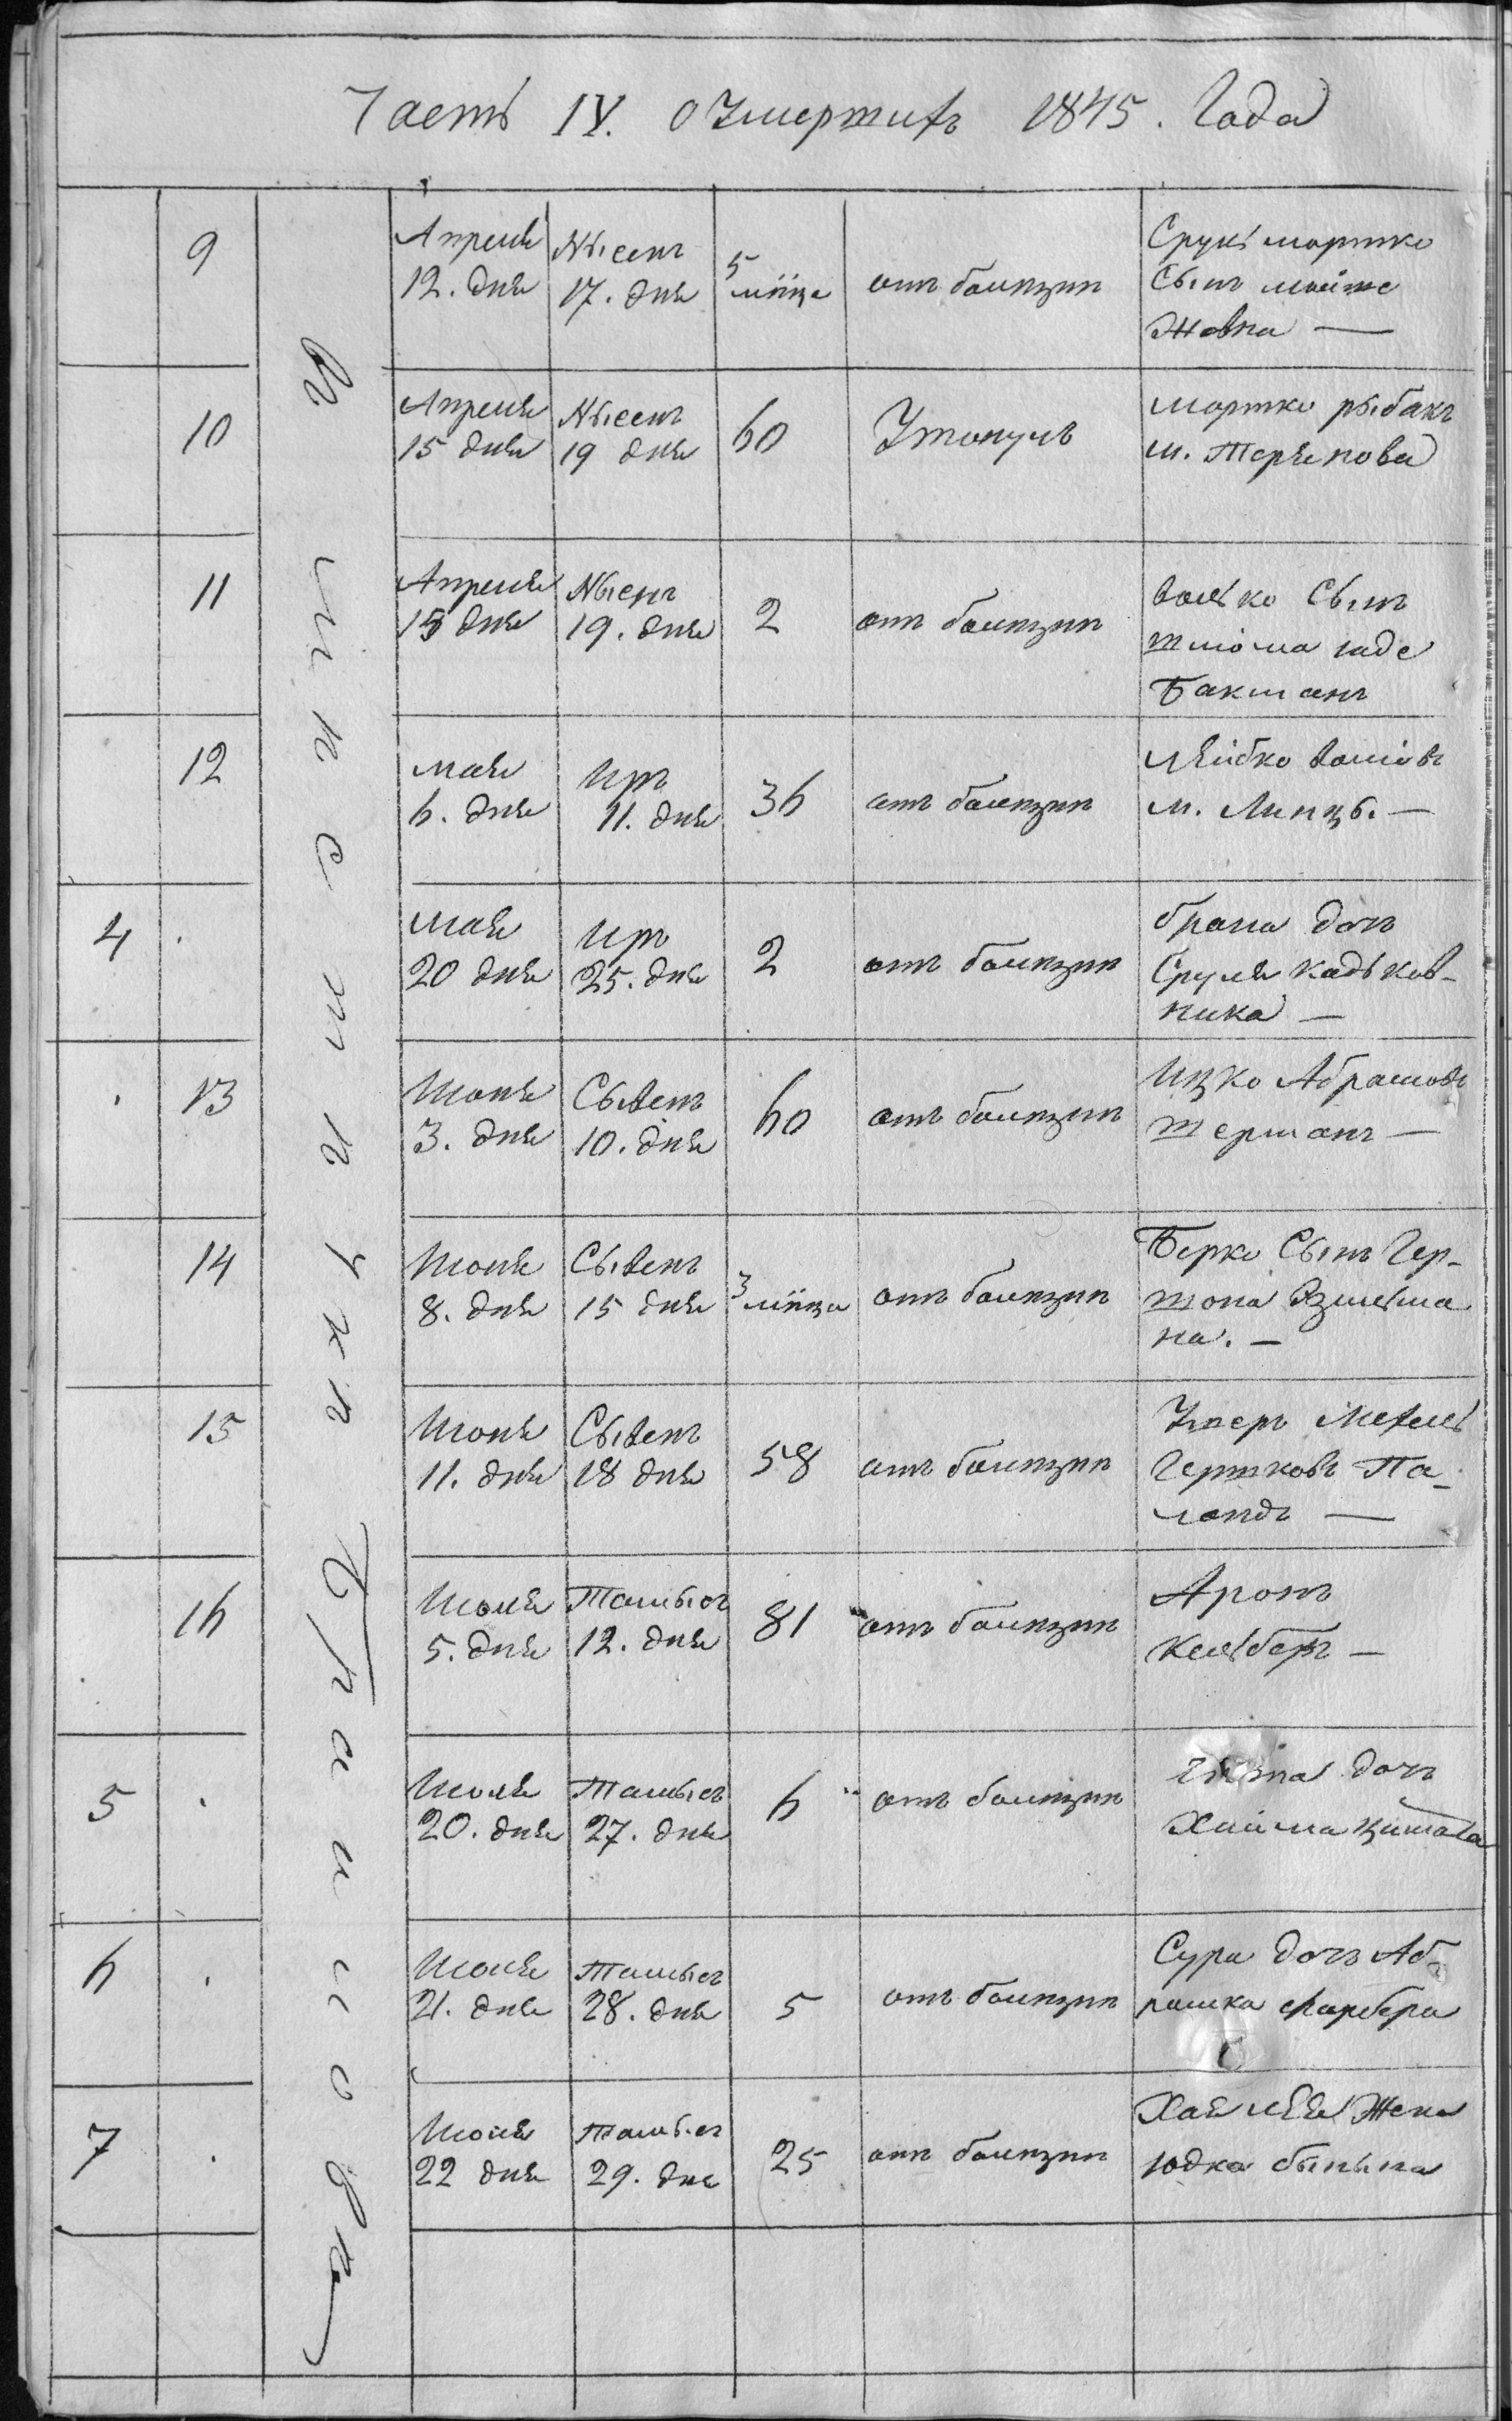 Часть IV. О Умершихъ 1845. Года
9
Апреля
12. дня
Нысенъ
17. дня
5
мѣца
отъ болѣзни
Сруль мортко
Сынъ мойше
Жовна —
10
Апреля
15 дня
Нысенъ
19 дня
60
Утонулъ
мортко рыбакъ
м. Терянова
11
Апреля
15 дня
Нысенъ
19. дня
2
отъ болѣзни
Волько Сынъ
шлиома
Бакманъ
12
мая
6. дня
Иръ
11. дня
36
отъ болѣзни
лейбко
м. Линцъ. —
4
мая
20 дня
Иръ
25. дня
2
отъ болѣзни
брана дочь
Сруля кадьков-
ника —
13
Июня
3. дня
Сывенъ
10. дня
60
отъ болѣзни
Ицко Абрамовъ
шерманъ —
14
Июня
8. дня
Сывенъ
15 дня
3
мѣца
отъ болѣзни
Берко Сынъ Гер-
шона Взильма
на. —
15
Июня
11. дня
Сывенъ
18 дня
58
отъ болѣзни
Умеръ Мехель
Гершковъ Па-
ландъ —
16
Июля
5. дня
Тамысъ
12. дня
81
отъ болѣзни
Аронъ
Кельберъ —
5
Июля
20. дня
Тамысъ
27. дня
6
отъ болѣзни
дочь
Хаима
6
Июля
21. дня
Тамысъ
28. дня
5
отъ болѣзни
Сура дочь Аб-
рамка Фарбера
7
Июля
22 дня
Тамысъ
29. дня
25
отъ болѣзни
Хая лея Жена
юдка